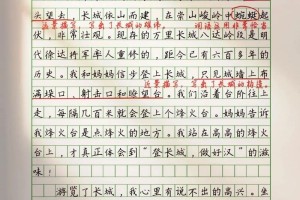 头望去，长城依山而建，在崇山峻岭中蜿蜒起
近景描写，写出了长城的雄伟。
伏，非常壮观。现存的万里长城八达岭段是明
代徐达将军率人重修的，距今已有六百多年的
历史。我和妈妈信步登上长城，只见城墙上布
近景描写，写出了长城的特征。
满垛口，射击口和瞭望台。我们沿着台阶往上
走，每隔几百米就会登上一个烽火台。妈妈告诉
我烽火台是点火的地方。我站在高高的烽火
台上，才真正体会到“登长城，做好汉”的滋
味！
游览了长城，我心里有说不出的高兴。坐